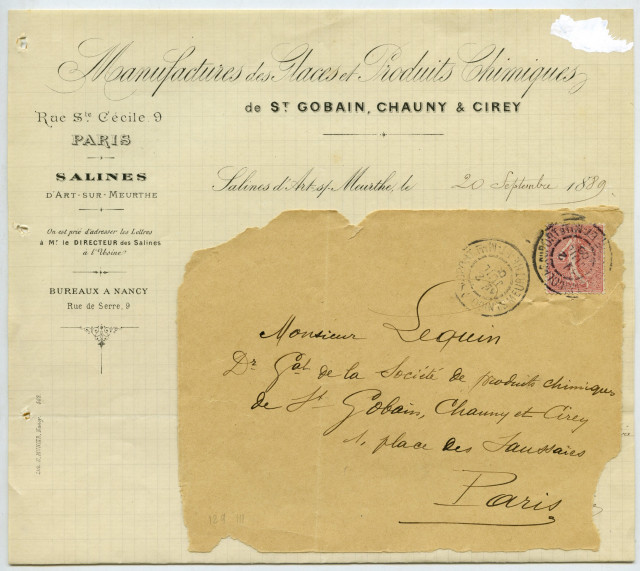 Manufactures des Glaces et Produits Chimiques
de ST GOBAIN, CHAUNY & CIREY
Rue Ste Cécile 9
PARIS
SALINES
D'ART-SUR-MEURTHE
On est prié d'adresser les Lettres
à Mr le DIRECTEUR des Salines
à l'Usine
BUREAUX A NANCY
Rue de Serre, 9
Salines d'Art s/ Meurthe, le 20 Septembre 1889
Monsieur Lequin
Dr Gal de la Société de produits chimiques
de St Gobain, Chauny et Cirey
1, place des Saussaies
Paris